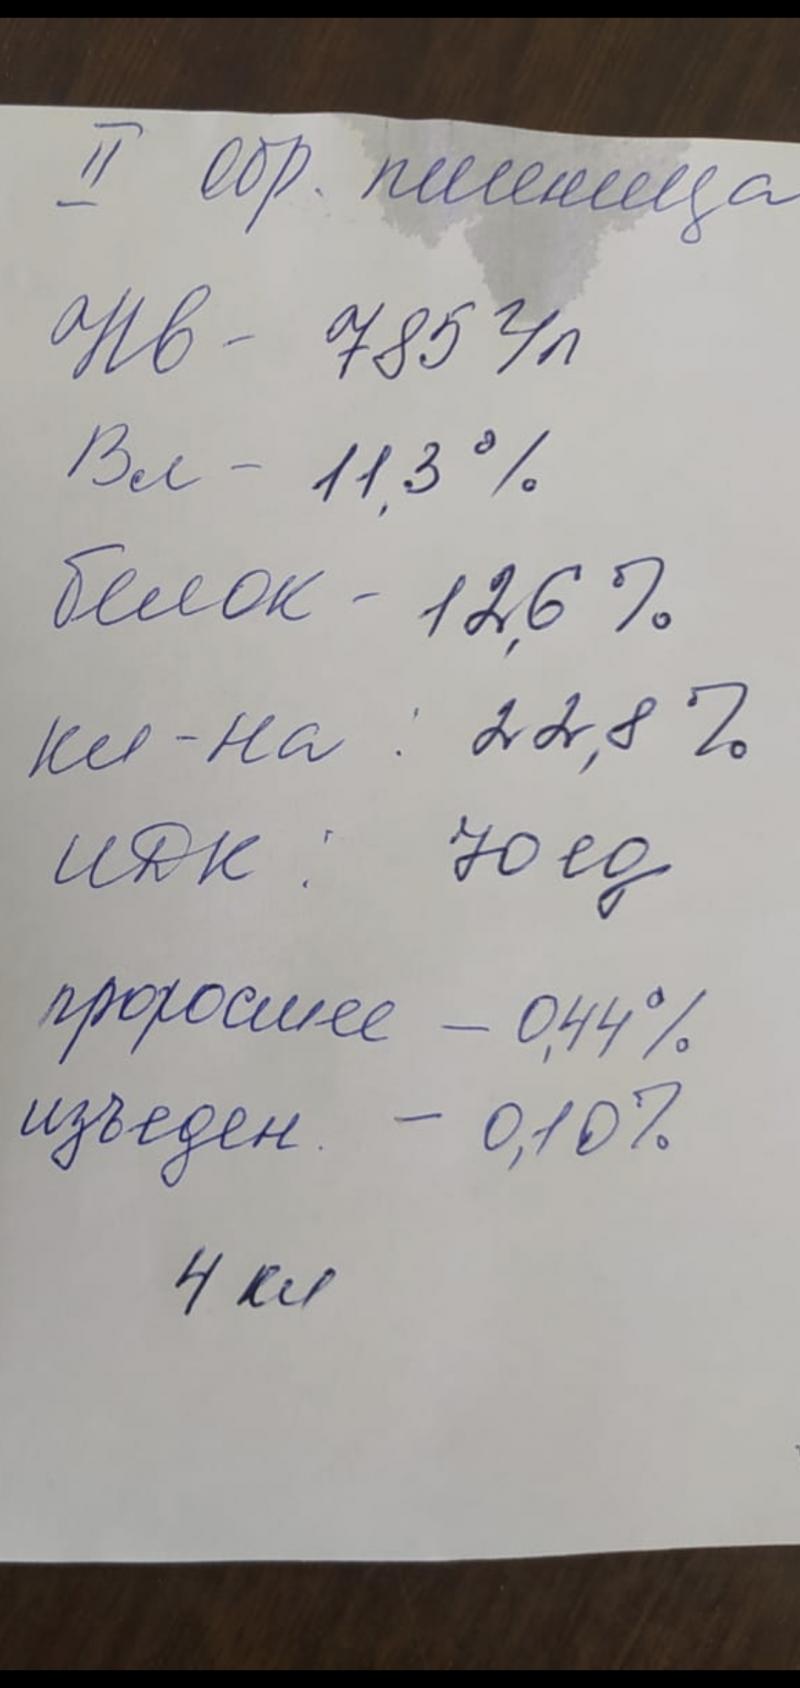 II обр. пшеница
Нв - 785 г/л
Вл - 11,3 %
белок - 12,6 %
кл-на : 22,8 %
ИДК : 70 ед
проросшее - 0,44 %
изъеден. - 0,10 %
4 кл